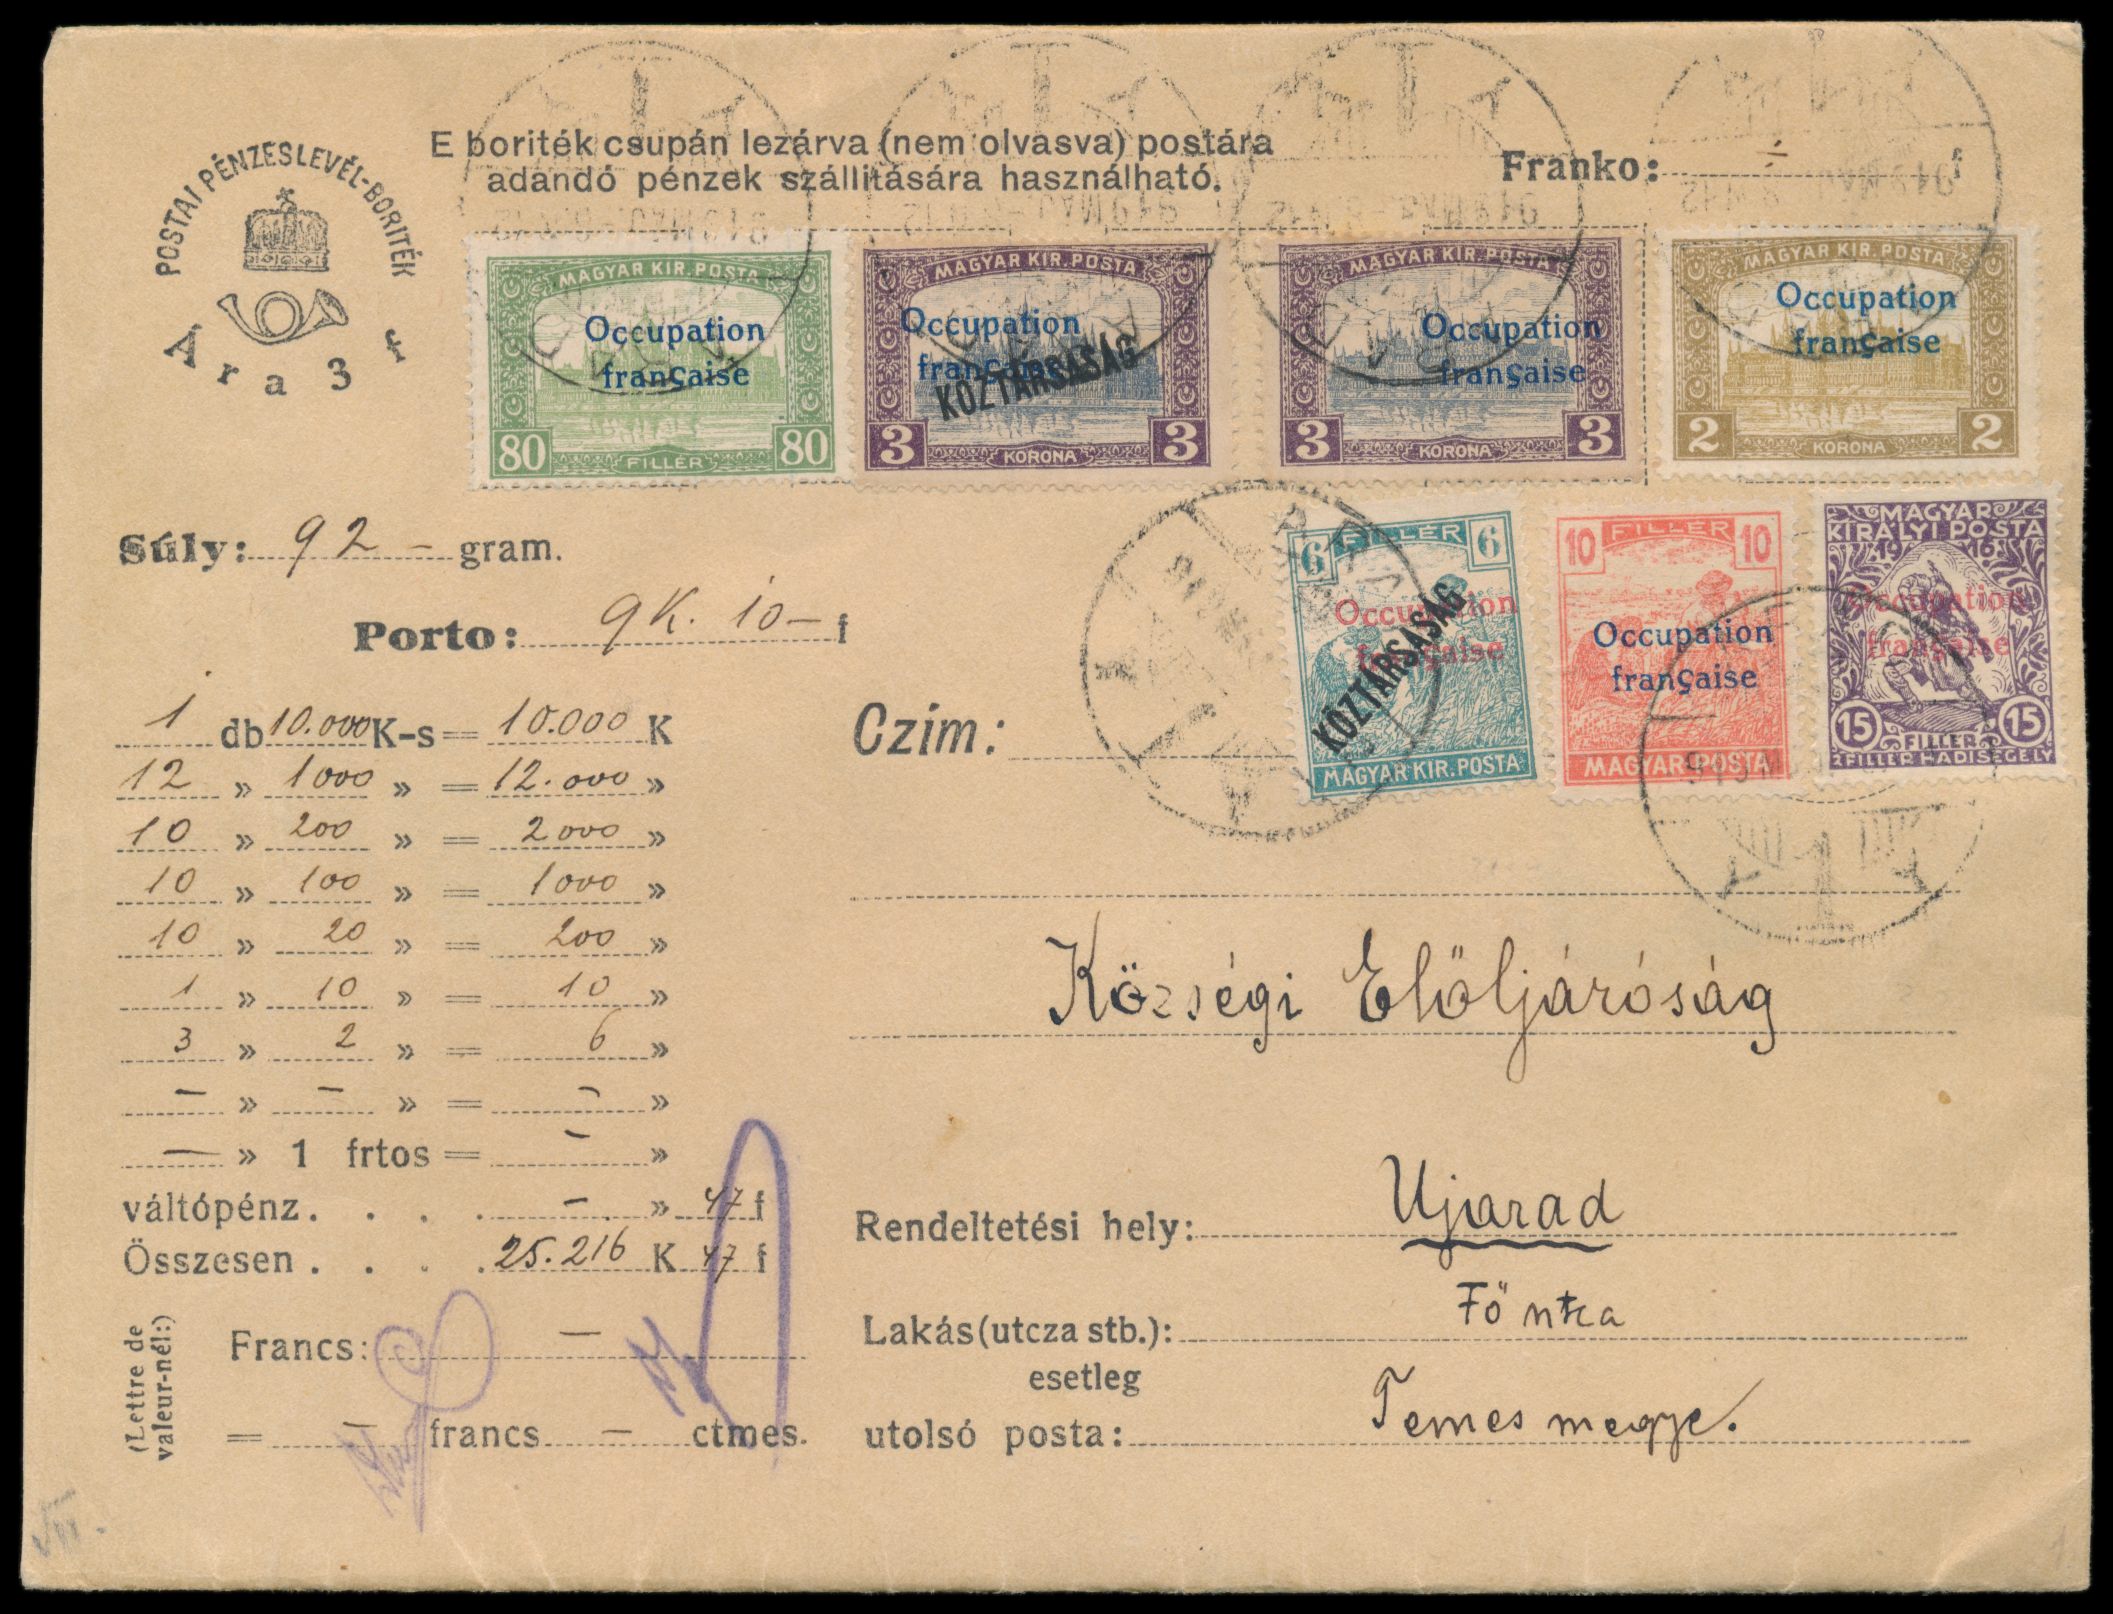 POSTAI PÉNZESLEVÉL-BORITÉK
Ára 3 f
E boriték csupán lezárva (nem olvasva) postára
adandó pénzek szállitására használható.
Franko: f
MAGYAR KIR. POSTA
Occupation
française
80 FILLÉR 80
MAGYAR KIR. POSTA
Occupation
française
KÖZTÁRSASÁG
3 KORONA 3
MAGYAR KIR. POSTA
Occupation
française
3 KORONA 3
MAGYAR KIR. POSTA
Occupation
française
2 KORONA 2
6 FILLÉR 6
Occupation
française
KÖZTÁRSASÁG
MAGYAR KIR. POSTA
10 FILLÉR 10
Occupation
française
MAGYAR POSTA
MAGYAR
KIRÁLYI POSTA
1916
Occupation
française
15 FILLÉR 15
2 FILLÉR HADISEGÉLY
Súly: 92 – gram.
Porto: 9 K. 10 – f
1 db 10.000 K-s = 10.000 K
12 » 1000 » = 12.000 »
10 » 200 » = 2000 »
10 » 100 » = 1000 »
10 » 20 » = 200 »
1 » 10 » = 10 »
3 » 2 » = 6 »
– » – » = – »
– » 1 frtos = – »
váltópénz . . . . – » 47 f
Összesen . . . . 25.216 K 47 f
(Lettre de
valeur-nél:)
Francs: –
= – francs – ctmes.
Czim:
Községi Elöljáróság
Rendeltetési hely: Ujarad
Lakás (utcza stb.): Fö utca
esetleg
utolsó posta: Temesmegye.